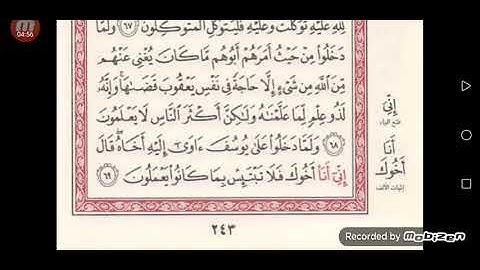 04:56
لِلَّهِ عَلَيْهِ تَوَكَّلْتُ وَعَلَيْهِ فَلْيَتَوَكَّلِ الْمُتَوَكِّلُونَ ٦٧ وَلَمَّا
دَخَلُوا مِنْ حَيْثُ أَمَرَهُمْ أَبُوهُم مَّا كَانَ يُغْنِي عَنْهُم
مِّنَ اللَّهِ مِن شَيْءٍ إِلَّا حَاجَةً فِي نَفْسِ يَعْقُوبَ قَضَىٰهَا وَإِنَّهُ
لَذُو عِلْمٍ لِّمَا عَلَّمْنَٰهُ وَلَٰكِنَّ أَكْثَرَ النَّاسِ لَا يَعْلَمُونَ
٦٨ وَلَمَّا دَخَلُوا عَلَىٰ يُوسُفَ ءَاوَىٰ إِلَيْهِ أَخَاهُ قَالَ
إِنِّيَ أَنَا أَخُوكَ فَلَا تَبْتَئِسْ بِمَا كَانُوا يَعْمَلُونَ ٦٩
إِنِّيَ
فتح الياء
أَنَا
أَخُوكَ
إثبات الألف
٢٤٣
Recorded by Mobizen